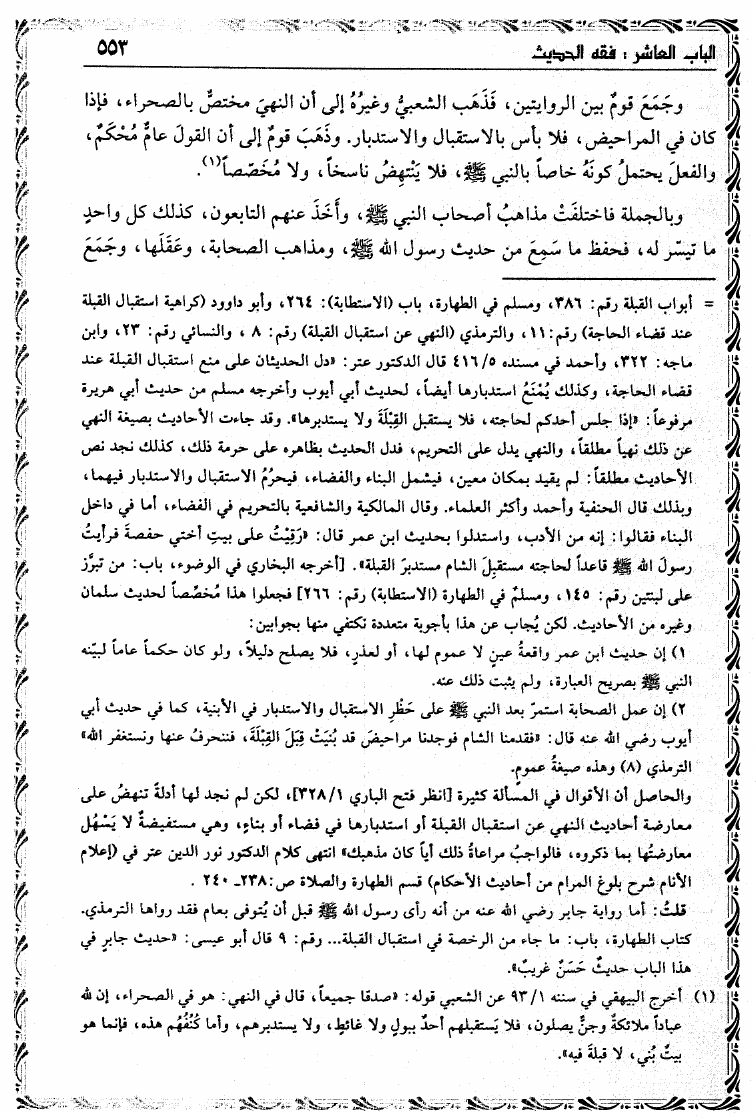 الباب العاشر : فقه الحديث
٥٥٣
وجَمَعَ قومٌ بين الروايتين، فَذَهَب الشعبيُّ وغيرُهُ إلى أن النهيَ مختصٌّ بالصحراء، فإذا
كان في المراحيض، فلا بأس بالاستقبال والاستدبار. وذَهَبَ قومٌ إلى أن القولَ عامٌّ مُحْكَمٌ،
والفعلَ يحتملُ كونَهُ خاصاً بالنبي ﷺ، فلا يَنْتَهِضُ ناسخاً، ولا مُخَصّصاً(١).
وبالجملة فاختلفَتْ مذاهبُ أصحاب النبي ﷺ، وأَخَذَ عنهم التابعون، كذلك كل واحدٍ
ما تيسّر له، فحفظ ما سَمِعَ من حديث رسول الله ﷺ، ومذاهب الصحابة، وعَقَلَها، وجَمَعَ
= أبواب القبلة رقم: ٣٨٦، ومسلم في الطهارة، باب (الاستطابة): ٢٦٤، وأبو داوود (كراهية استقبال القبلة
عند قضاء الحاجة) رقم: ١١، والترمذي (النهي عن استقبال القبلة) رقم: ٨ ، والنسائي رقم: ٢٣، وابن
ماجه: ٣٢٢، وأحمد في مسنده ٤١٦/٥ قال الدكتور عتر: «دل الحديثان على منع استقبال القبلة عند
قضاء الحاجة، وكذلك يُمْنَعُ استدبارها أيضاً، لحديث أبي أيوب وأخرجه مسلم من حديث أبي هريرة
مرفوعاً: «إذا جلس أحدكم لحاجته، فلا يستقبل القِبْلَةَ ولا يستدبرها». وقد جاءت الأحاديث بصيغة النهي
عن ذلك نهياً مطلقاً، والنهي يدل على التحريم، فدل الحديث بظاهره على حرمة ذلك، كذلك نجد نص
الأحاديث مطلقاً: لم يقيد بمكان معين، فيشمل البناء والفضاء، فيحرُمُ الاستقبال والاستدبار فيهما،
وبذلك قال الحنفية وأحمد وأكثر العلماء. وقال المالكية والشافعية بالتحريم في الفضاء، أما في داخل
البناء فقالوا: إنه من الأدب، واستدلوا بحديث ابن عمر قال: «رَقِيْتُ على بيتِ أختي حفصةَ فرأيتُ
رسولَ الله ﷺ قاعداً لحاجته مستقبِلَ الشام مستدبرَ القبلة». [أخرجه البخاري في الوضوء، باب: من تبرَّز
على لبنتين رقم: ١٤٥، ومسلمٌ في الطهارة (الاستطابة) رقم: ٢٦٦] فجعلوا هذا مُخصِّصاً لحديث سلمان
وغيره من الأحاديث. لكن يُجاب عن هذا بأجوبة متعددة نكتفي منها بجوابين:
١) إن حديث ابن عمر واقعةُ عينٍ لا عموم لها، أو لعذرٍ، فلا يصلح دليلاً، ولو كان حكماً عاماً لبيّنه
النبي ﷺ بصريح العبارة، ولم يثبت ذلك عنه.
٢) إن عمل الصحابة استمرّ بعد النبي ﷺ على حَظْرِ الاستقبال والاستدبار في الأبنية، كما في حديث أبي
أيوب رضي الله عنه قال: «فقدمنا الشام فوجدنا مراحيضَ قد بُنيَتْ قِبَلَ القِبْلَةَ، فننحرفُ عنها ونستغفر الله»
الترمذي (٨) وهذه صيغةُ عمومٍ.
والحاصل أن الأقوال في المسألة كثيرة [انظر فتح الباري ٣٢٨/١]، لكن لم نجد لها أدلةً تنهضُ على
معارضة أحاديث النهي عن استقبال القبلة أو استدبارها في فضاء أو بناءٍ، وهي مستفيضةٌ لا يَسْهُل
معارضتُها بما ذكروه، فالواجبُ مراعاةُ ذلك أياً كان مذهبك» انتهى كلام الدكتور نور الدين عتر في (إعلام
الأنام شرح بلوغ المرام من أحاديث الأحكام) قسم الطهارة والصلاة ص:٢٣٨ـ ٢٤٠ .
قلتُ: أما رواية جابر رضي الله عنه من أنه رأى رسول الله ﷺ قبل أن يُتوفى بعام فقد رواها الترمذي.
كتاب الطهارة، باب: ما جاء من الرخصة في استقبال القبلة... رقم: ٩ قال أبو عيسى: «حديث جابرٍ في
هذا الباب حديثٌ حَسَنٌ غريبٌ».
(١) أخرج البيهقي في سننه ٩٣/١ عن الشعبي قوله: «صدقا جميعاً، قال في النهي: هو في الصحراء، إن لله
عباداً ملائكةً وجنٌّ يصلون، فلا يَستقبلهم أحدٌ ببولٍ ولا غائطٍ، ولا يستدبرهم، وأما كُنُفُهُم هذه، فإنما هو
بيتٌ بُني، لا قبلةَ فيه».